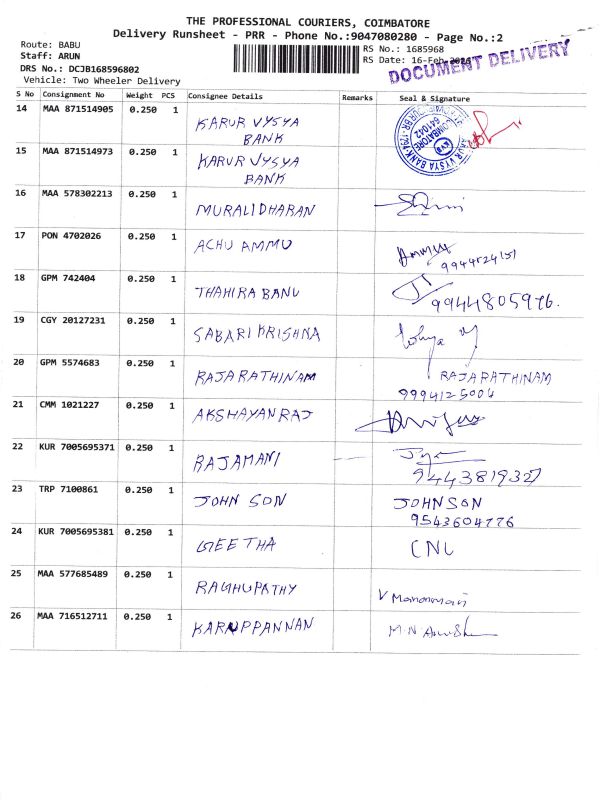 THE PROFESSIONAL COURIERS, COIMBATORE
Delivery Runsheet - PRR - Phone No.:9047080280 - Page No.:2
Route: BABU
RS No.: 1685968
Staff: ARUN
RS Date: 16-Feb-2026
DRS No.: DCJB168596802
DOCUMENT DELIVERY
Vehicle: Two Wheeler Delivery
S No Consignment No Weight PCS Consignee Details Remarks Seal & Signature
14 MAA 871514905 0.250 1 KARUR VYSYA
BANK
15 MAA 871514973 0.250 1 KARUR VYSYA
BANK
COIMBATORE
641042
KVB
16 MAA 578302213 0.250 1 MURALIDHARAN
17 PON 4702026 0.250 1 ACHU AMMU
18 GPM 742404 0.250 1 THAHIRA BANU
9944805976.
19 CGY 20127231 0.250 1 SABARI KRISHNA
20 GPM 5574683 0.250 1 RAJARATHINAM RAJARATHINAM
9994125004
21 CMM 1021227 0.250 1 AKSHAYANRAJ
22 KUR 7005695371 0.250 1 RAJAMANI
9443819327
23 TRP 7100861 0.250 1 JOHN SON JOHNSON
9543604776
24 KUR 7005695381 0.250 1 GEETHA CNL
25 MAA 577685489 0.250 1 RAGHUPATHY
26 MAA 716512711 0.250 1 KARUPPANNAN